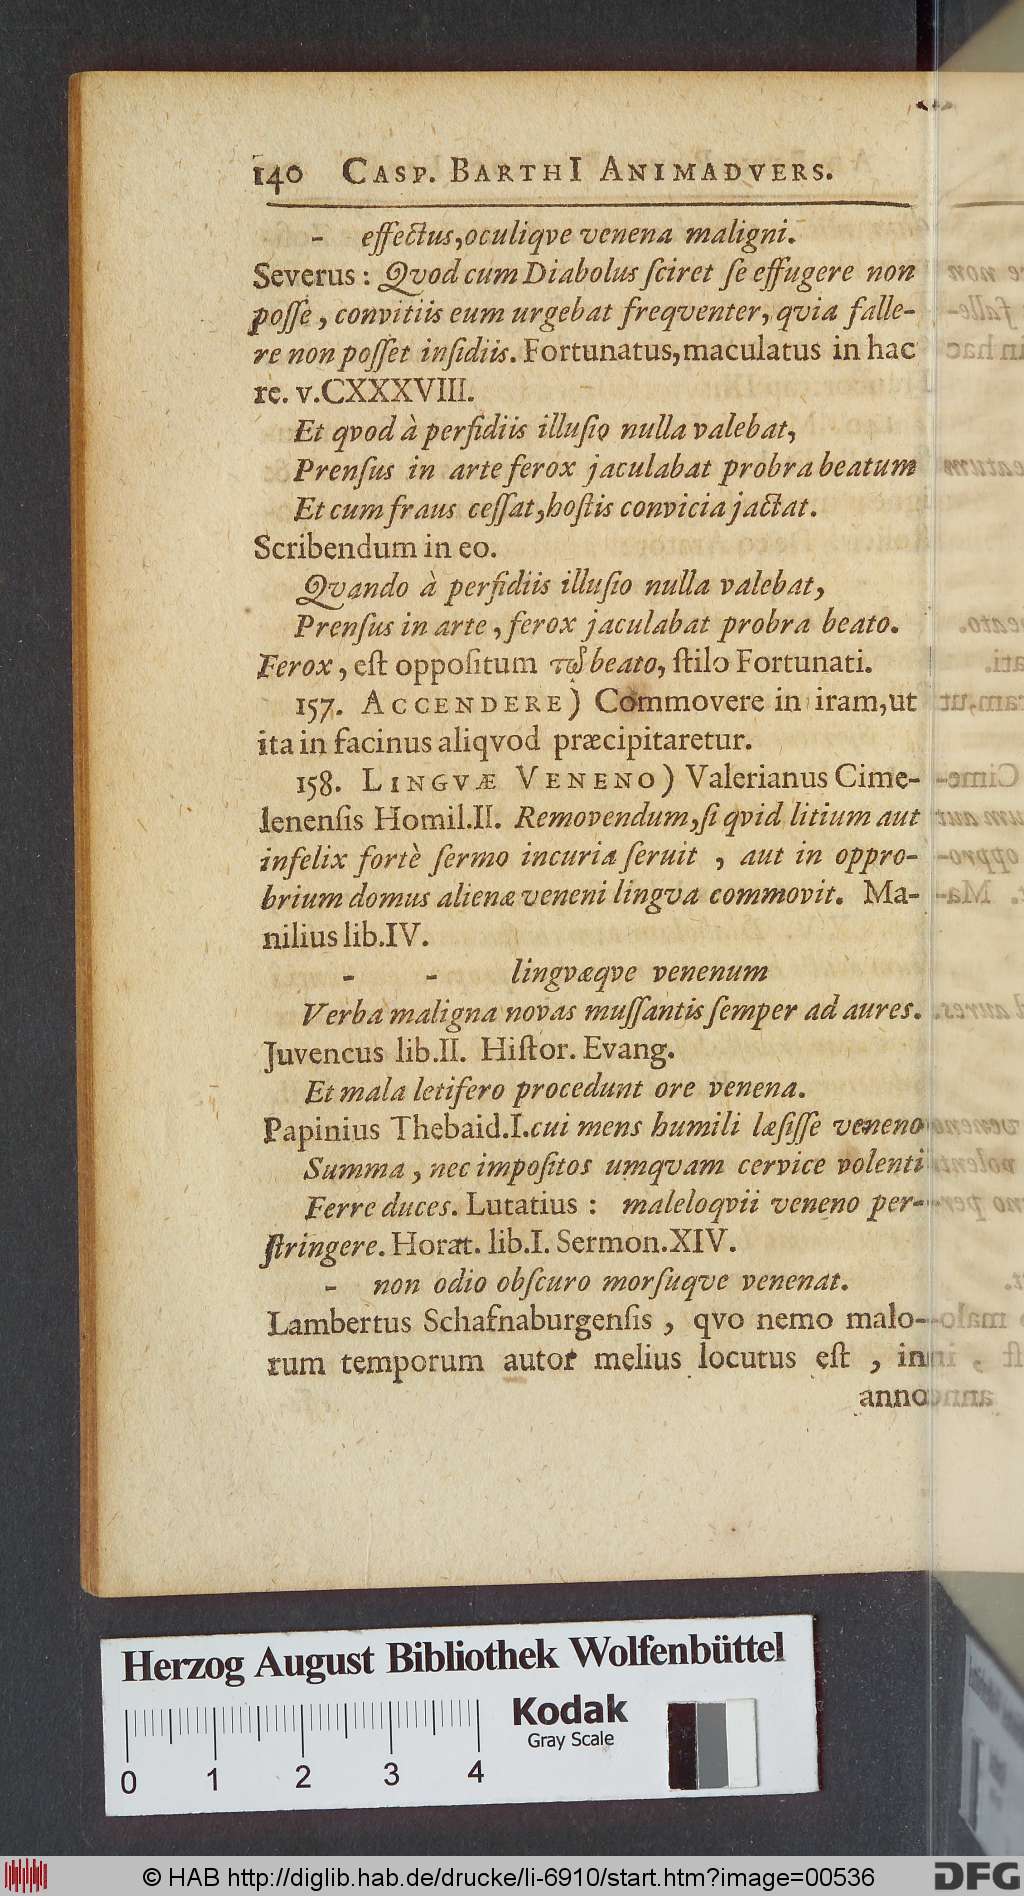 140 CASP. BARTHI ANIMADVERS.
- effectus,oculiqve venena maligni.
Severus: Qvod cum Diabolus ſciret ſe effugere non
poſſe, convitiis eum urgebat freqventer, qvia falle-
re non poſſet inſidiis. Fortunatus, maculatus in hac
re. v.CXXXVIII.
Et qvod à perfidiis illuſio nulla valebat,
Prenſus in arte ferox jaculabat probra beatum
Et cum fraus ceſſat,hoſtis convicia jactat.
Scribendum in eo.
Qvando à perfidiis illuſio nulla valebat,
Prenſus in arte, ferox jaculabat probra beato.
Ferox, eſt oppoſitum τῷ beato, ſtilo Fortunati.
157. ACCENDERE) Commovere in iram,ut
ita in facinus aliqvod præcipitaretur.
158. LINGVÆ VENENO) Valerianus Cime-
lenenſis Homil.II. Removendum,ſi qvid litium aut
infelix fortè ſermo incuria ſeruit, aut in oppro-
brium domus alienæ veneni lingva commovit. Ma-
nilius lib.IV.
- - lingvæqve venenum
Verba maligna novas muſſantis ſemper ad aures.
Juvencus lib.II. Hiſtor. Evang.
Et mala letifero procedunt ore venena.
Papinius Thebaid.I.cui mens humili læſiſſe veneno
Summa, nec impoſitos umqvam cervice volenti
Ferre duces. Lutatius: maleloqvii veneno per-
ſtringere. Horat. lib.I. Sermon.XIV.
- non odio obſcuro morſuqve venenat.
Lambertus Schafnaburgenſis, qvo nemo malo-
rum temporum autor melius locutus eſt, in
anno
Herzog August Bibliothek Wolfenbüttel
Kodak
Gray Scale
0 1 2 3 4
© HAB http://diglib.hab.de/drucke/li-6910/start.htm?image=00536
DFG